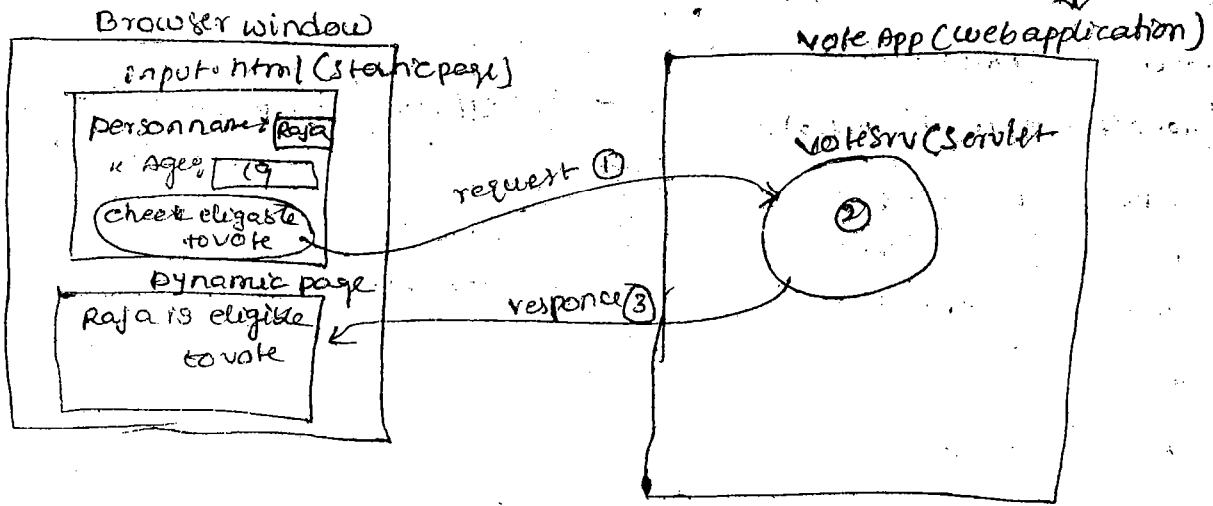 Browser window
input.html (static page)
person name: Raja
" Age: 19
check eligable
to vote
Dynamic page
Raja is eligible
to vote
request ①
responce ③
Vote App (web application)
VoteSrv (Servlet
②